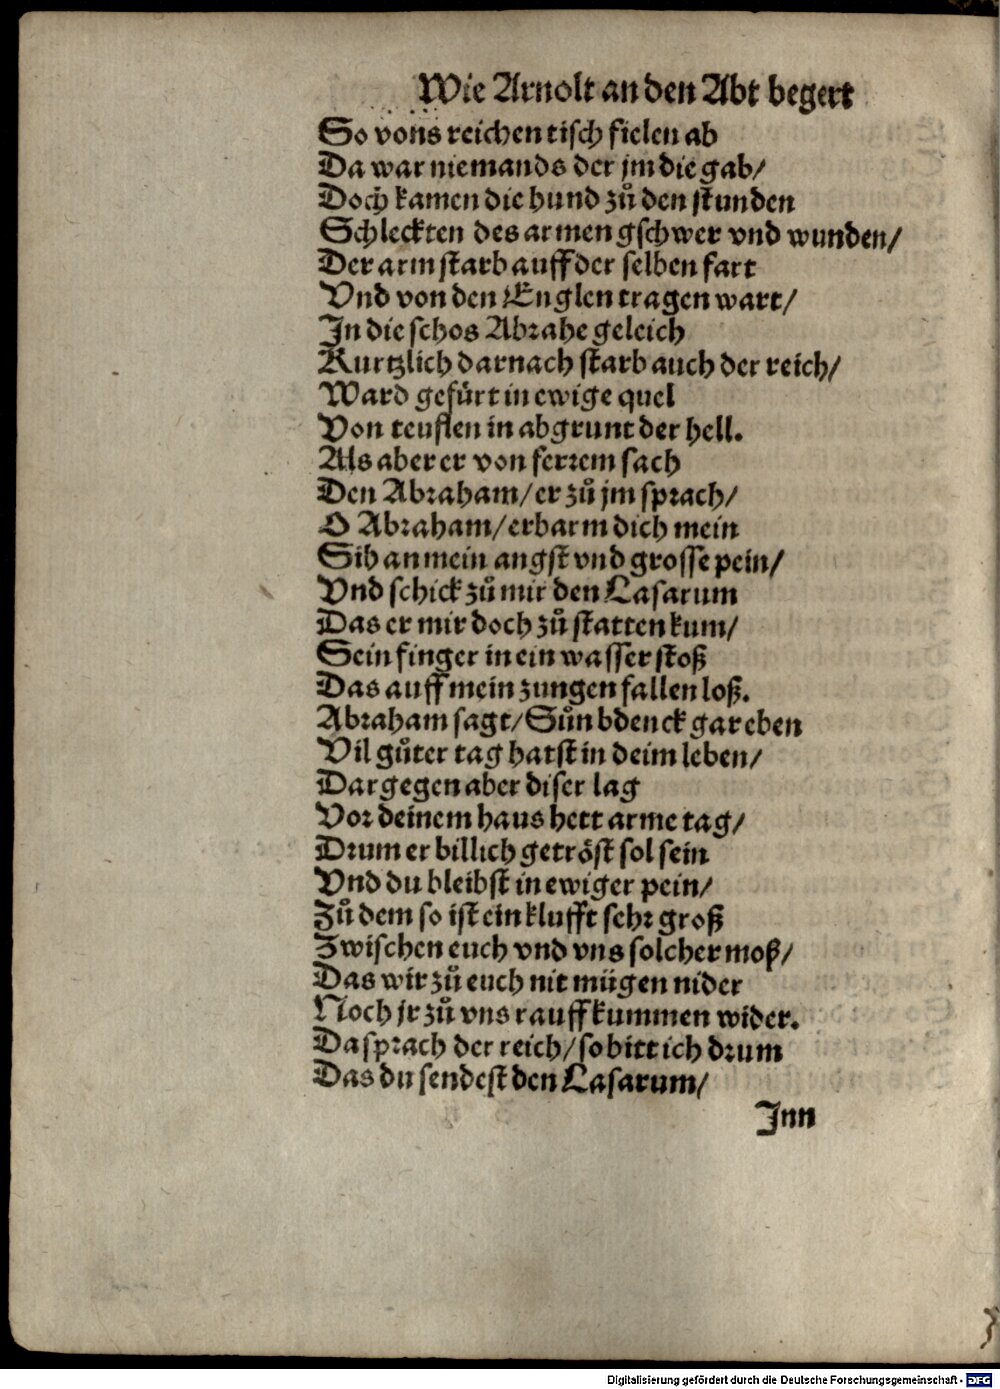 Wie Arnolt an den Abt begert
So vons reichen tisch fielen ab
Da war niemands der jm die gab/
Doch kamen die hund zů den stunden
Schleckten des armen gschwer vnd wunden/
Der arm starb auff der selben fart
Vnd von den Englen tragen wart/
In die schos Abrahe geleich
Kurtzlich darnach starb auch der reich/
Ward gefürt in ewige quel
Von teuflen in abgrunt der hell.
Als aber er von ferrem sach
Den Abraham/ er zů jm sprach/
O Abraham/ erbarm dich mein
Sih an mein angst vnd grosse pein/
Vnd schick zů mir den Lasarum
Das er mir doch zů statten kum/
Sein finger in ein wasser stoß
Das auff mein zungen fallen loß.
Abraham sagt/ Sůn bdenck gar eben
Vil gůter tag hatst in deim leben/
Dargegen aber diser lag
Vor deinem haus hett arme tag/
Drum er billich getröst sol sein
Vnd du bleibst in ewiger pein/
Zů dem so ist ein klufft sehr groß
Zwischen euch vnd vns solcher moß/
Das wir zů euch nit mügen nider
Noch jr zů vns rauff kummen wider.
Da sprach der reich/ so bitt ich drum
Das du sendest den Lasarum/
Inn
Digitalisierung gefördert durch die Deutsche Forschungsgemeinschaft - DFG